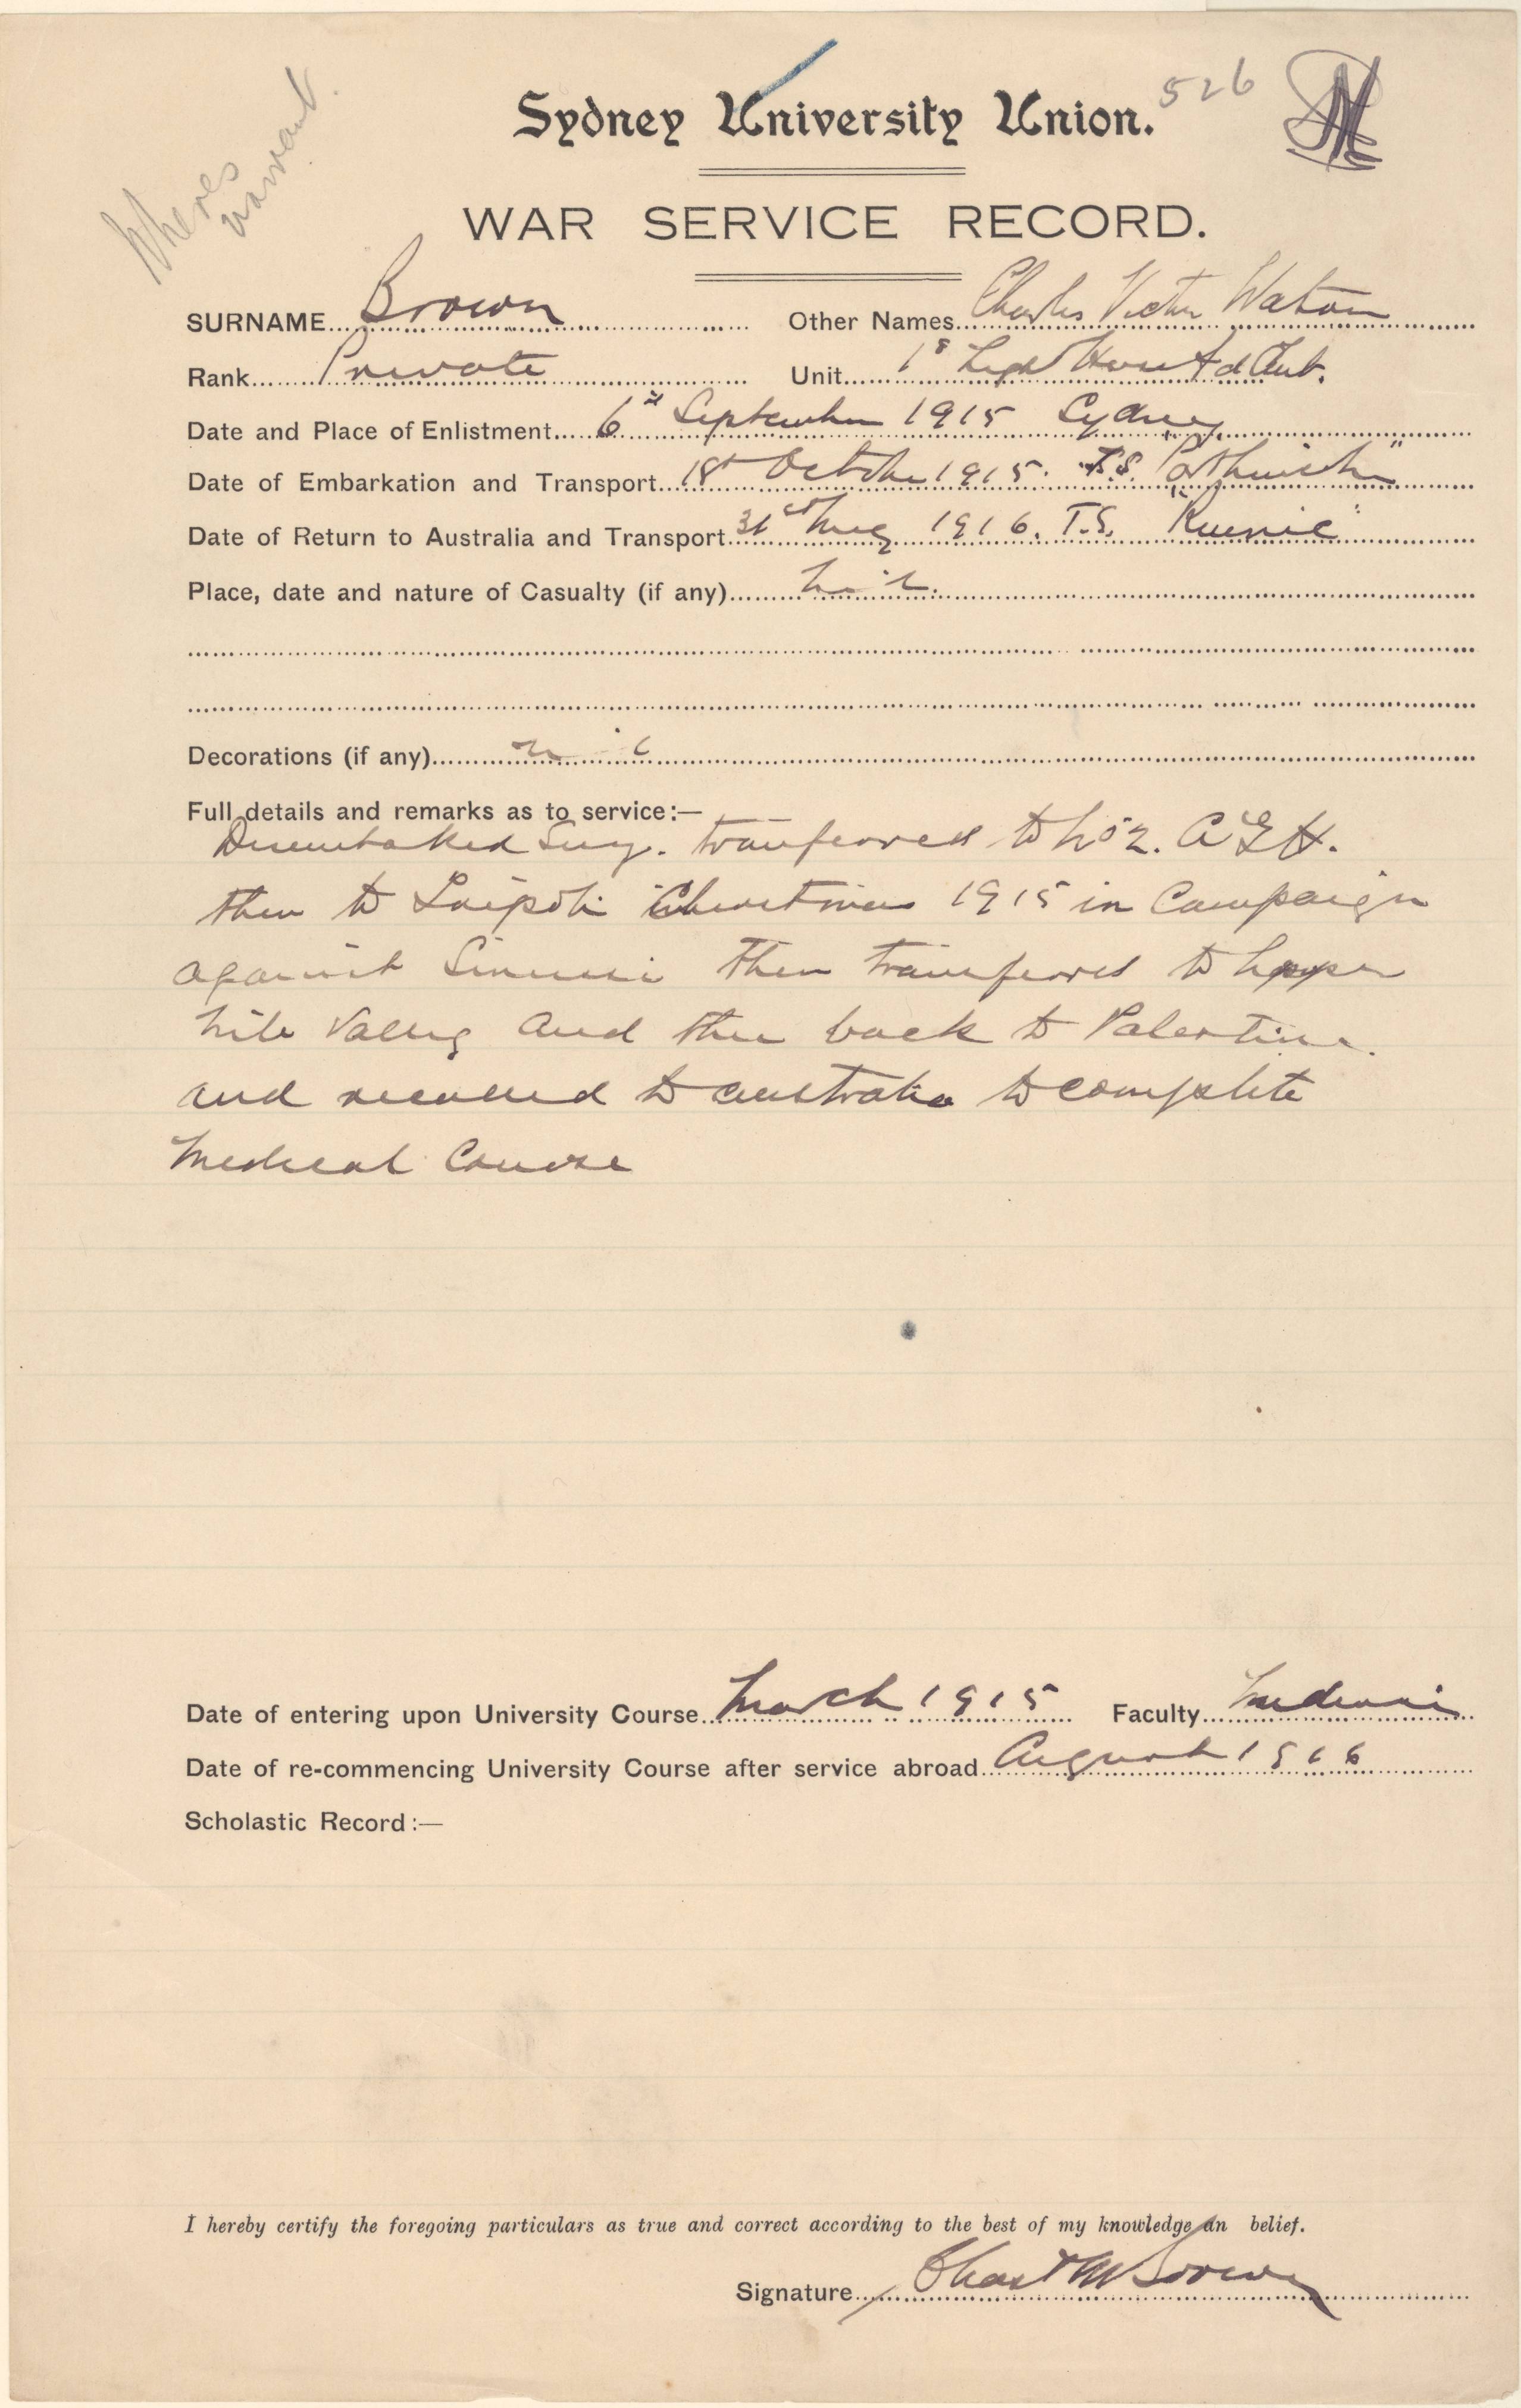 526
Sydney University Union.
Wheres warrant.
WAR SERVICE RECORD.
SURNAME Brown Other Names Charles Victor Watson
Rank Private Unit 1st Light Horse Fd Amb.
Date and Place of Enlistment 6th September 1915 Sydney
Date of Embarkation and Transport 18th October 1915. T.S.
Date of Return to Australia and Transport 31st Aug 1916. T.S. "Runic"
Place, date and nature of Casualty (if any) nil.
Decorations (if any) nil
Full details and remarks as to service:—
Disembarked Suez. Transferred to No 2. A G H.
then to Christmas 1915 in Campaign
against Senussi then transferred to Upper
Nile Valley and then back to Palestine.
and recalled to Australia to complete
Medical Course
Date of entering upon University Course March 1915 Faculty Medicine
Date of re-commencing University Course after service abroad August 1916
Scholastic Record:—
I hereby certify the foregoing particulars as true and correct according to the best of my knowledge an belief.
Signature Chas V W Brown